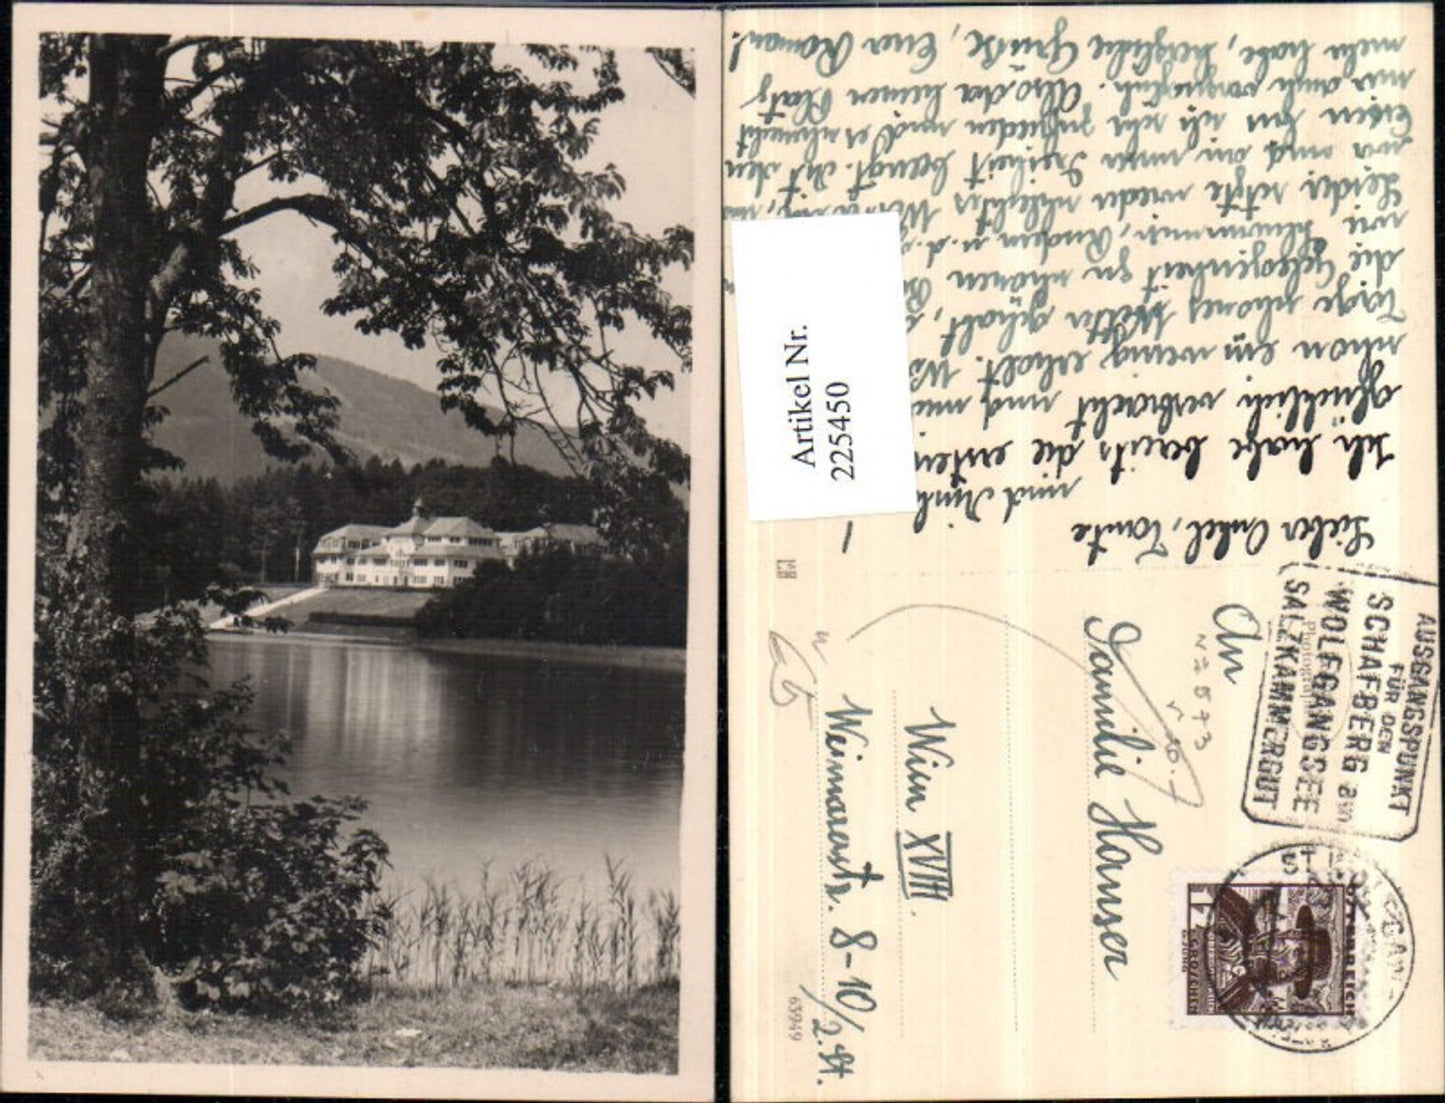 Lieber Onkel, Tante
und
Ich habe bereits die ersten
glücklich verbracht und
schon ein wenig erholt.
Tage schönes Wetter gehabt,
die Gelegenheit zu schönen
wie Schwimmen, Rudern u. d.
Leider setzte wieder schlechtes Wetter ein,
wir sind in unserer Freiheit beengt. Mit dem
Essen bin ich sehr zufrieden und es schmeckt
mir auch vorzüglich. Also da keinen Platz
mehr habe, herzliche Grüße, Euer Roman!
Artikel Nr.
225450
AUSGANGSPUNKT
FÜR DEN
SCHAFBERG am
WOLFGANGSEE
SALZKAMMERGUT
An
Familie Hanser
Wien XVIII.
Weimarerstr. 8-10/2. St.
N2573
63949
ÖSTERREICH
1
GROSCHEN